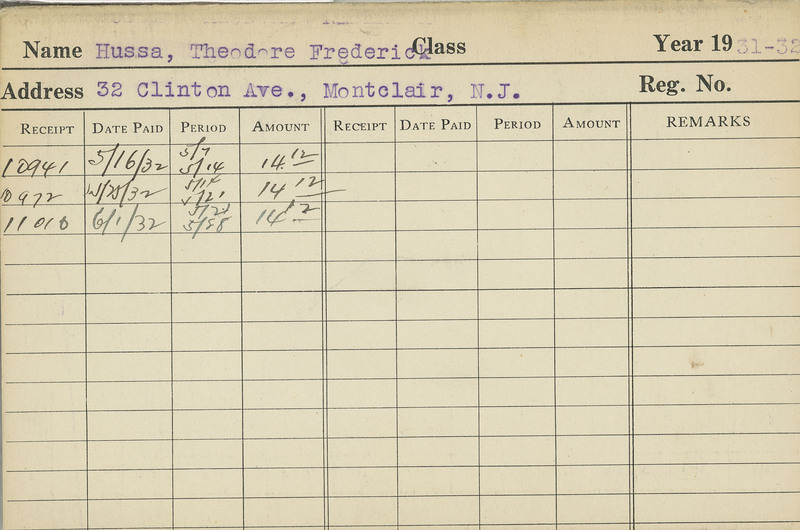 Name Hussa, Theodore Frederick Class Year 1931-32
Address 32 Clinton Ave., Montclair, N.J. Reg. No.
RECEIPT DATE PAID PERIOD AMOUNT RECEIPT DATE PAID PERIOD AMOUNT REMARKS
5/7
10941 5/16/32 5/14 14.12
5/14
10972 5/25/32 5/21 14 12
5/21
11010 6/1/32 5/28 14 12